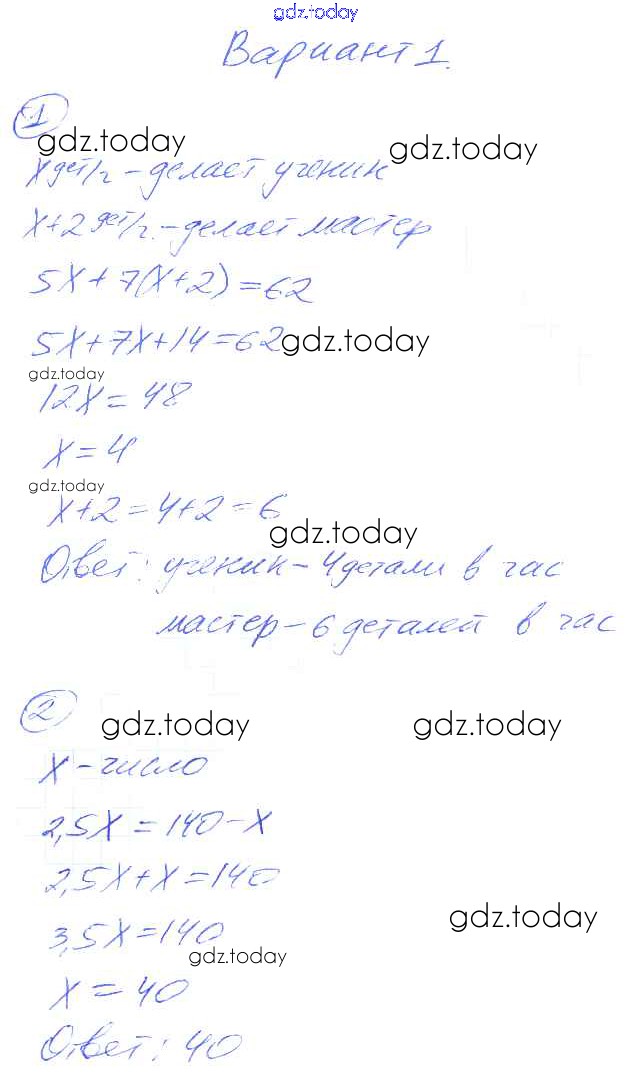 gdz.today
Вариант 1.
1
gdz.today
gdz.today
x дет/г - делает ученик
x+2 дет/г. - делает мастер
5x + 7(x+2) = 62
5x+7x+14=62
gdz.today
gdz.today
12x = 48
x = 4
gdz.today
x+2 = 4+2 = 6
gdz.today
Ответ: ученик - 4 детали в час
мастер - 6 деталей в час
2
gdz.today
gdz.today
x - число
2,5x = 140 - x
2,5x + x = 140
gdz.today
3,5x = 140
gdz.today
x = 40
Ответ: 40